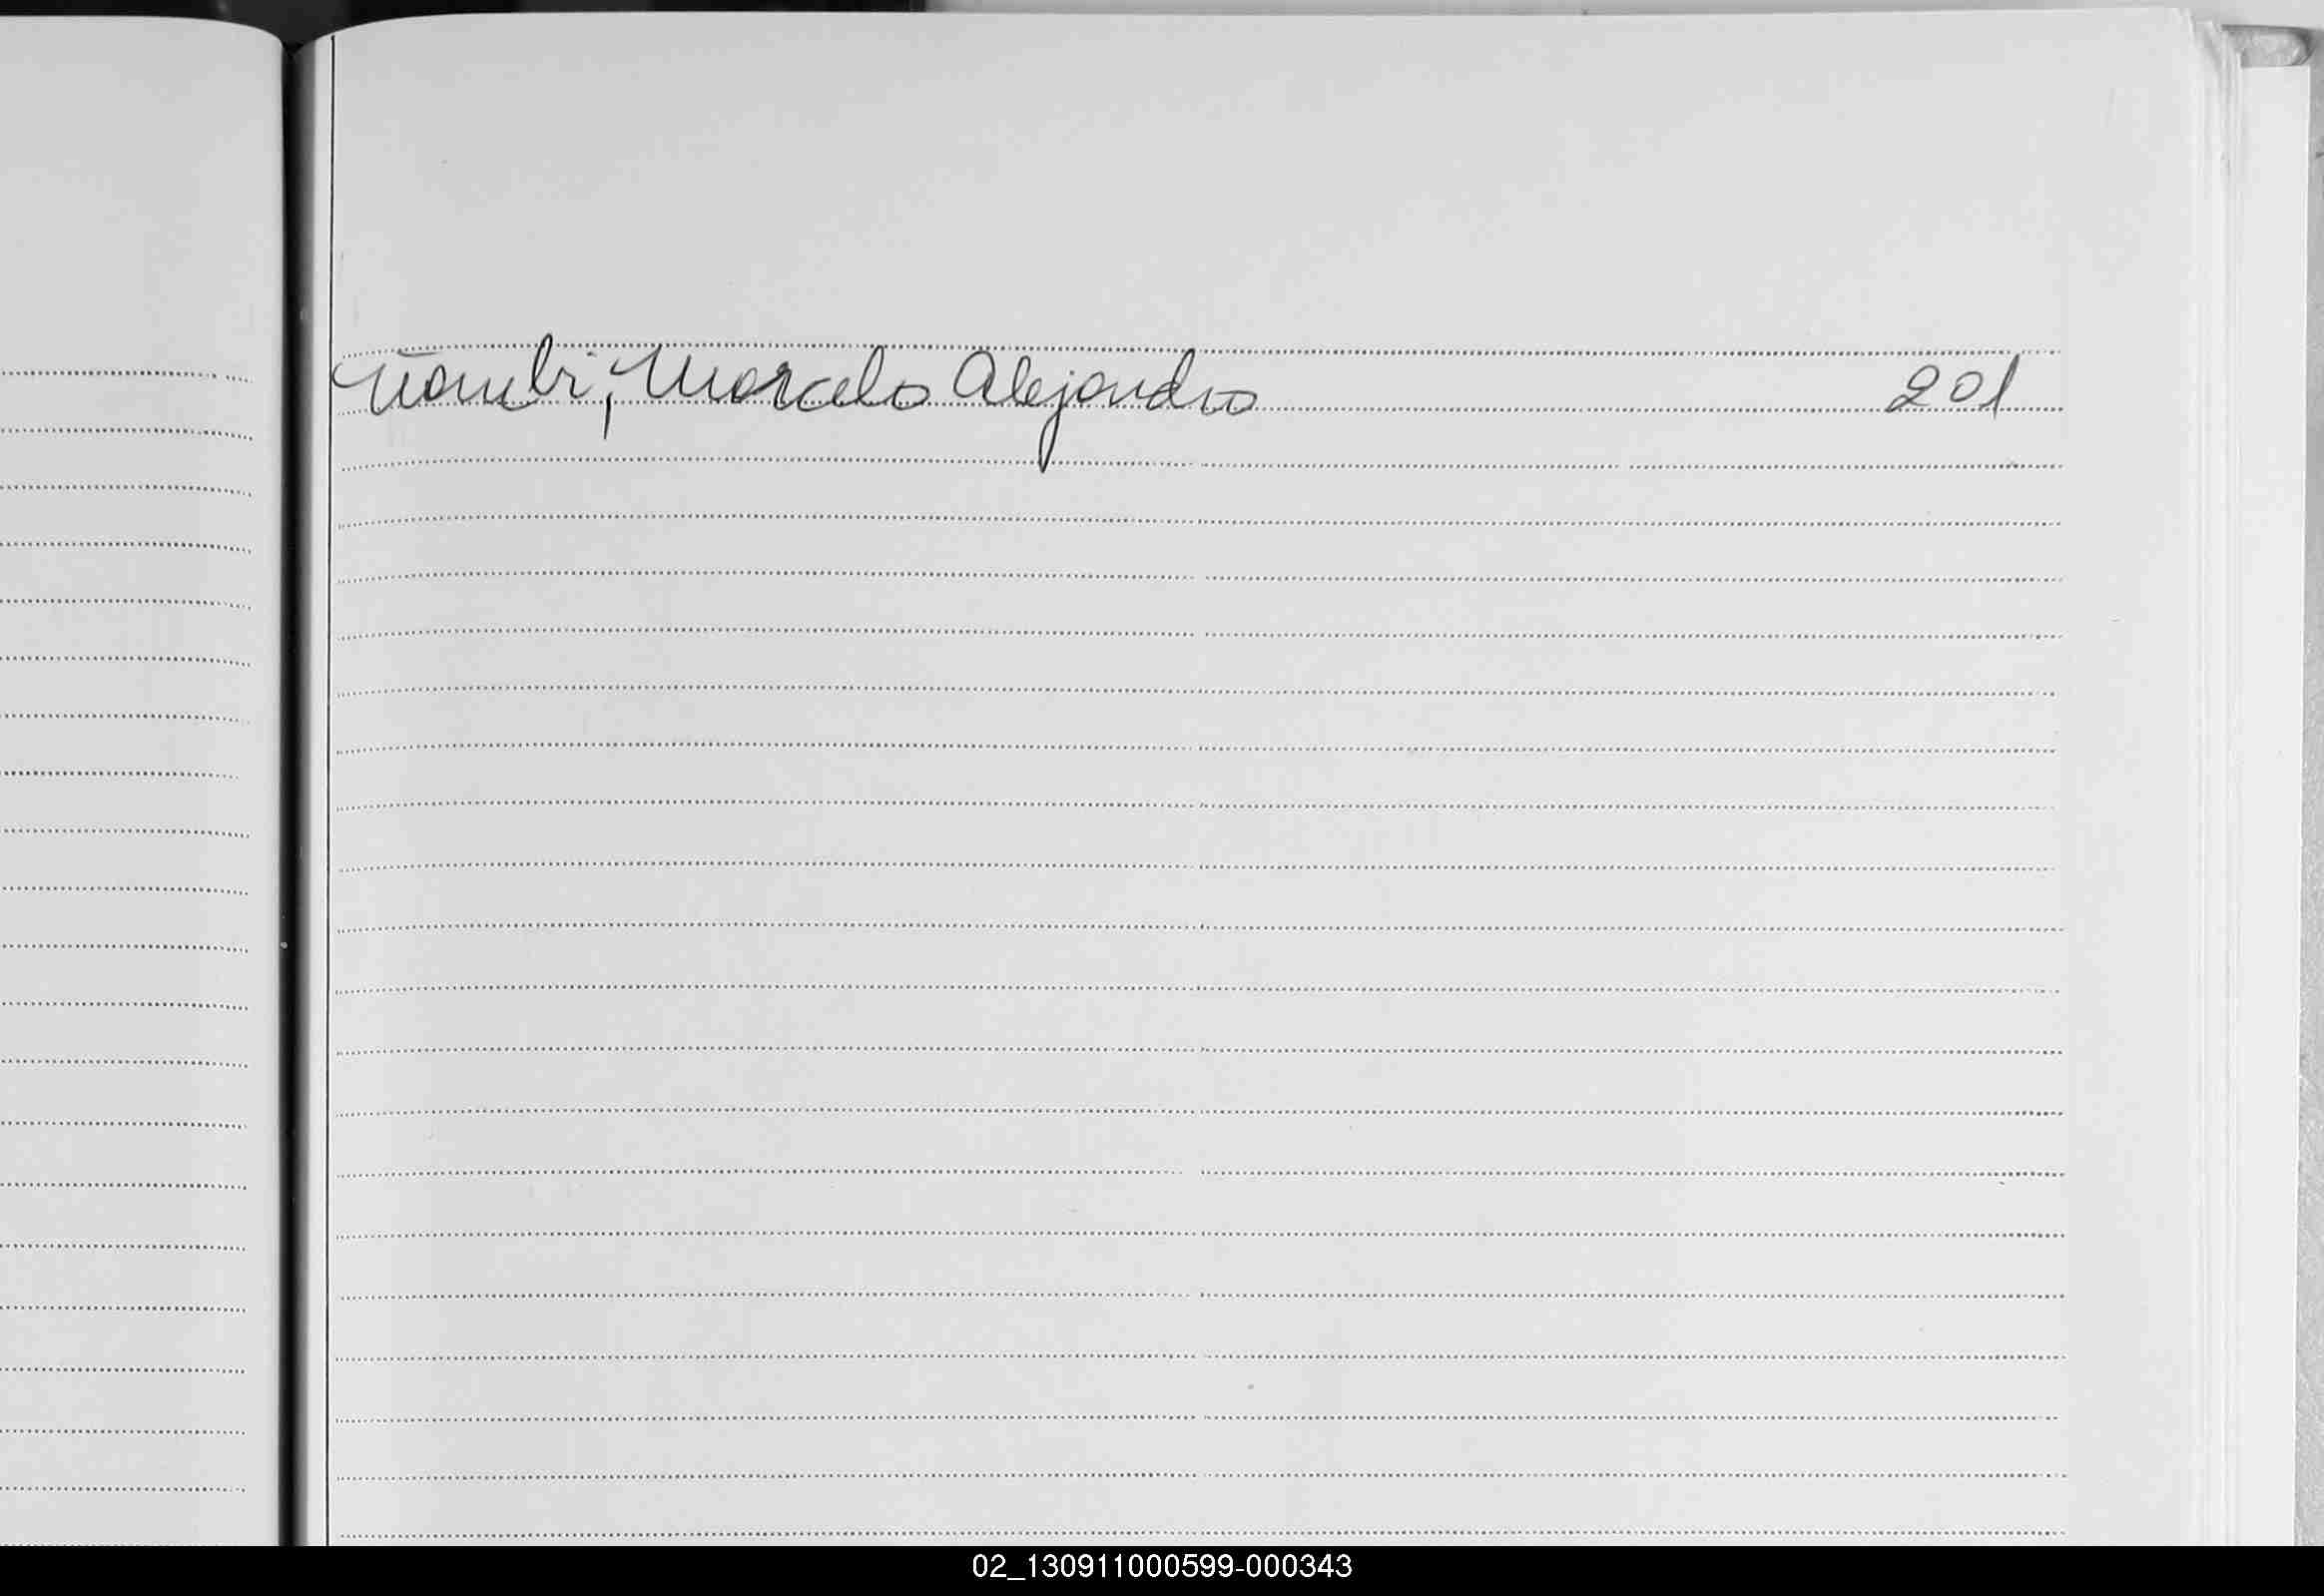 Ñambi, Marcelo Alejandro 201
02_130911000599-000343